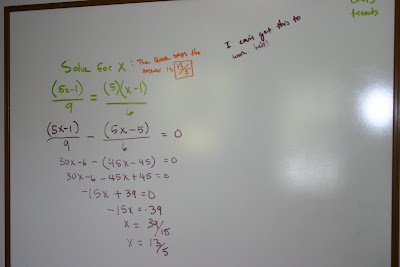 Solve for X : The Book says the
answer is 13/5
(5x-1)/9 = (5)(x-1)/6
(5x-1)/9 - (5x-5)/6 = 0
30x-6 - (45x-45) = 0
30x-6 - 45x+45 = 0
-15x + 39 = 0
-15x = -39
x = 39/15
x = 13/5
I can't get this to
work